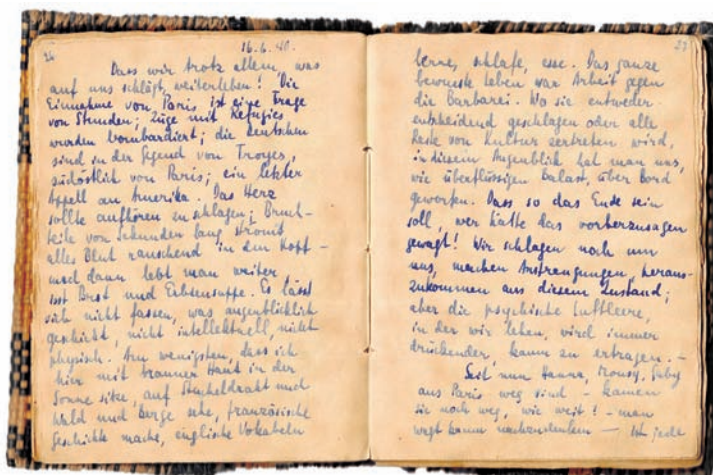 26
16.6.40.
Dass wir trotz allem, was
auf uns schlägt, weiterleben! Die
Einnahme von Paris ist eine Frage
von Stunden; Züge mit Refugiés
wurden bombardiert; die Deutschen
sind in der Gegend von Troyes,
südöstlich von Paris; ein letzter
Appell an Amerika. Das Herz
sollte aufhören zu schlagen; Bruch-
teile von Sekunden lang strömt
alles Blut rauschend in den Kopf –
und dann lebt man weiter
isst Brot und Erbsensuppe. Es lässt
sich nicht fassen, was augenblicklich
geschieht, nicht intellektuell, nicht
physisch. Am wenigsten, dass ich
hier mit brauner Haut in der
Sonne sitze, auf Stacheldraht und
Wald und Berge sehe, französische
Geschichte mache, englische Vokabeln
27
lerne, schlafe, esse. Das ganze
bewusste Leben war Arbeit gegen
die Barbarei. Wo sie entweder
entscheidend geschlagen oder alle
Reste von Kultur zertreten wird,
in diesem Augenblick hat man uns,
wie überflüssigen Balast, über Bord
geworfen. Dass so das Ende sein
soll, wer hätte das vorherzusagen
gewagt! Wir schlagen noch um
uns, machen Anstrengungen, heraus-
zukommen aus diesem Zustand;
aber die psychische Luftleere,
in der wir leben, wird immer
drückender, kaum zu ertragen. –
Seit nun Hanna, Mousy, Gaby
aus Paris weg sind – kamen
sie noch weg, wie weit? – man
wagt kaum nachzudenken – Ist jede